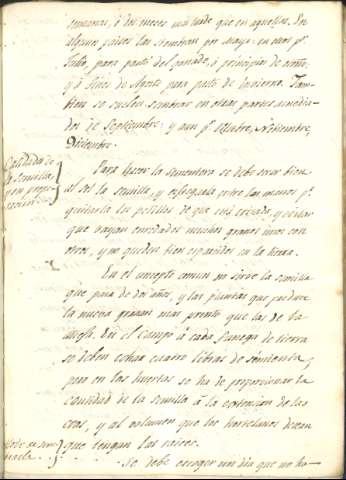 semanas, ó dos meses mas tarde que en aquellos. En
algunos paises las siembran por mayo: en otros pr.
Julio, para pasto del ganado, ó principios de otoño,
y ó fines de Agosto para pasto de invierno. Tam-
bien se suelen sembrar en otras partes a media-
dos de Septiembre, y aun pr. Octubre, Noviembre,
Diciembre.
Calidad de
la semilla
y su prepa-
racion.
Para hacer la sementera se debe secar bien
al sol la semilla, y estregarla entre las manos pr.
quitarla los pelillos de que está erizada, y evitar
que vayan enredados muchos granos unos con
otros, y no queden bien esparcidos en la tierra.
En el concepto comun no sirve la semilla
que pasa de dos años, y las plantas que produce
la nueva granan mas pronto que las de la
añeja. En el campo á cada fanega de tierra
se deben echar cuatro libras de simiente,
pero en las huertas se ha de proporcionar la
cantidad de la semilla á la extension de las
eras, y al volumen que los hortelanos deseen
que tengan las raices.
debe sem-
brarla.
Se debe escoger un dia que no ha-